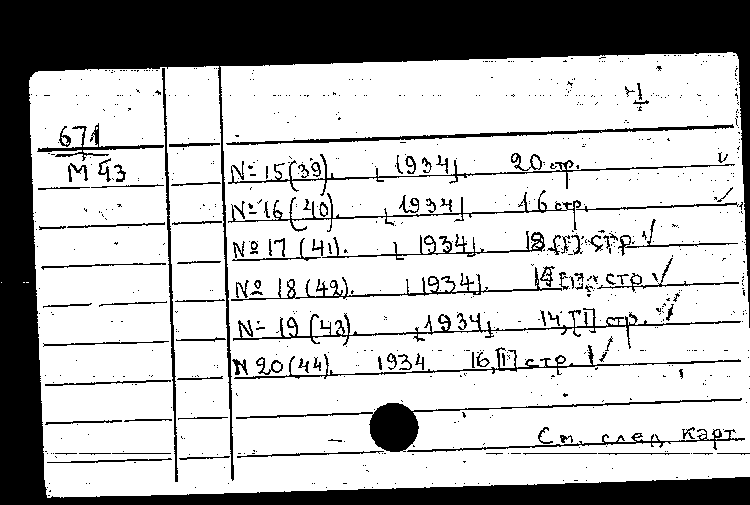 671
М 43
№ 15 (39). [1934]. 20 стр.
№ 16 (40). [1934]. 16 стр.
№ 17 (41). [1934]. 18 [1] стр
№ 18 (42). [1934]. стр
№ 19 (43). [1934]. 14, [1] стр.
N 20 (44). 1934. 16, [1] стр.
См. след. карт